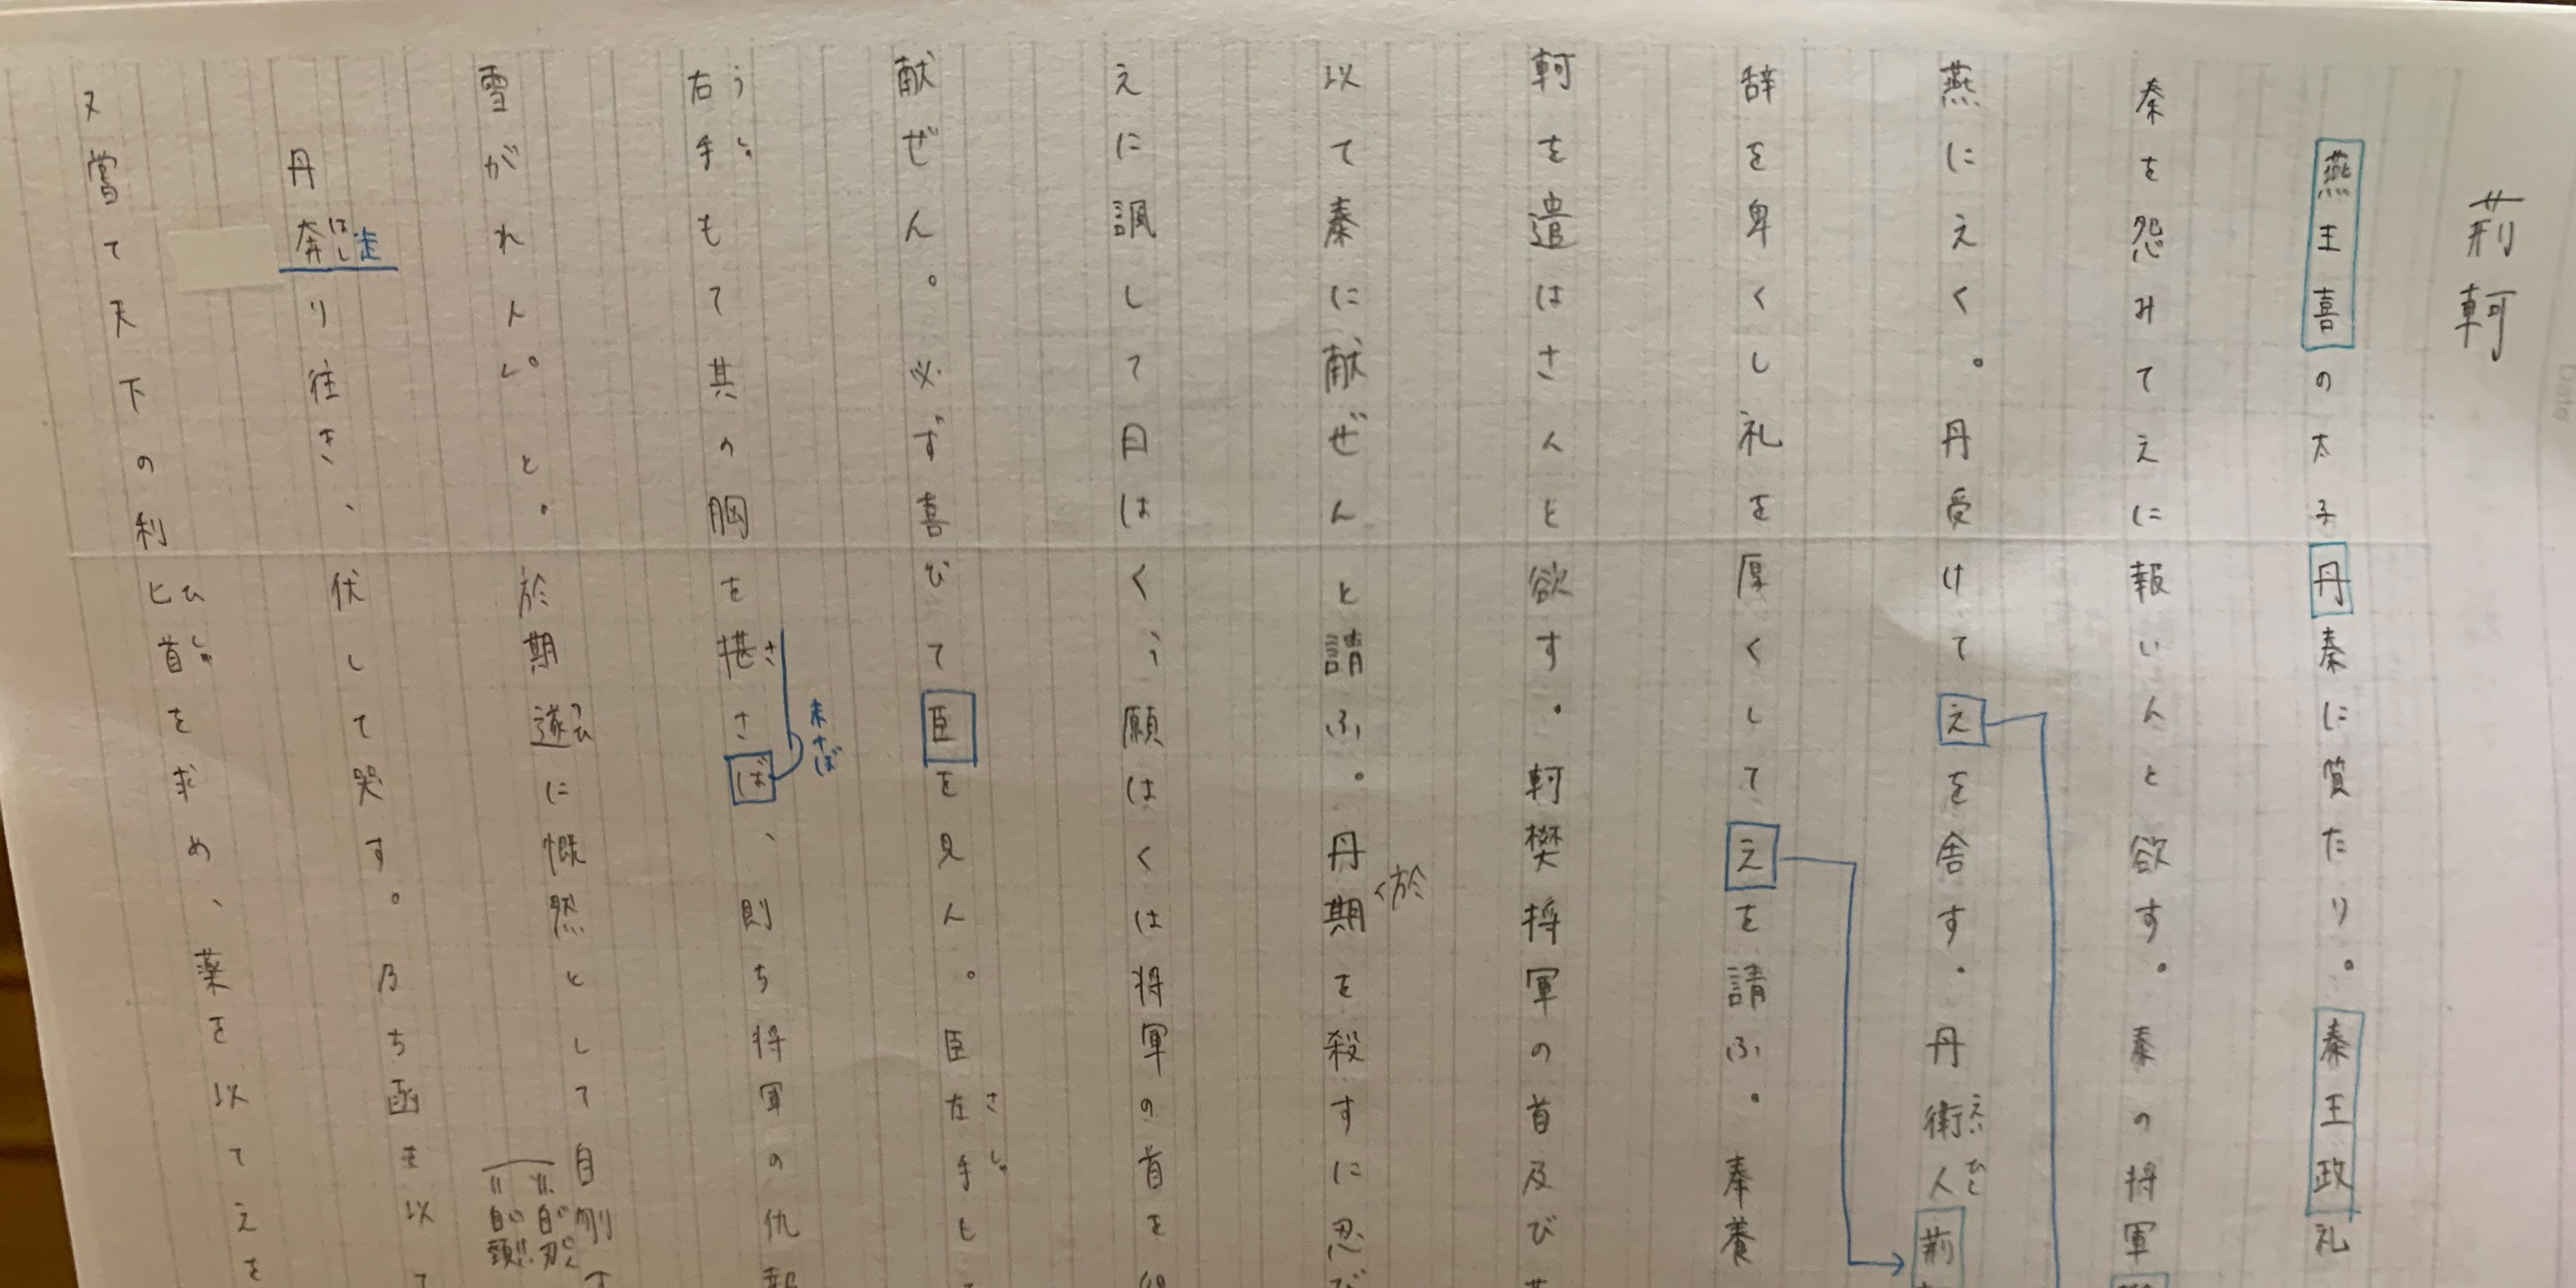 荊軻
燕王喜の太子丹秦に質たり。秦王政礼
秦を怨みてえに報いんと欲す。秦の将軍
燕にえく。丹受けてえを舎す。丹衛人荊
えい ひと
辞を卑くし礼を厚くしてえを請ふ。奉養
軻を遣はさんと欲す。軻樊将軍の首及び
以て秦に献ぜんと請ふ。丹期を殺すに忍び
於
えに諷して曰はく、願はくは将軍の首を
献ぜん。必ず喜びて臣を見ん。臣左手も
さ しゅ
右手もて其の胸を揕さば、則ち将軍の仇報
う しゅ
さ
未 さば
雪がれん。と。於期遂に慨然として自刎す
つひ
=自刃
=自頸
丹奔り往き、伏して哭す。乃ち函を以て
はし
走
又嘗て天下の利匕首を求め、薬を以てえを
ひ しゅ